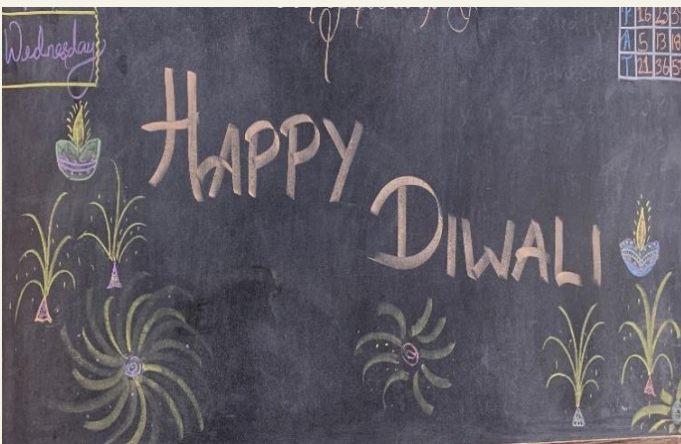 Wednesday
P 16 23
A 5 13 18
T 21 36 5
HAPPY
DIWALI